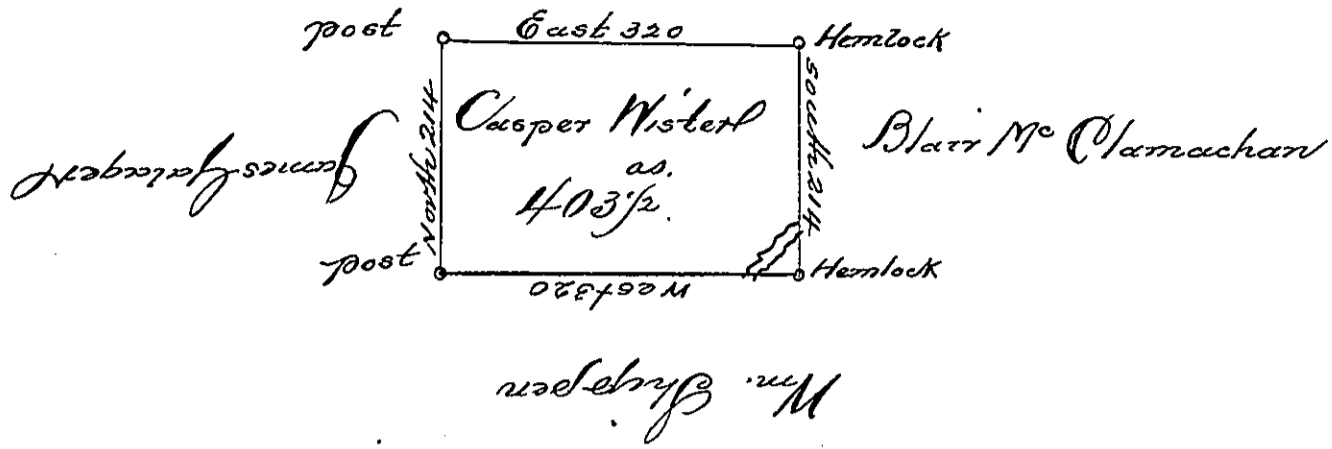 post East 320 Hemlock
North 214
Casper Wisterl
as.
403 1/2.
South 214
Blair Mc Clamachan
James Galagert
post West 320 Hemlock
Wm. Shippen